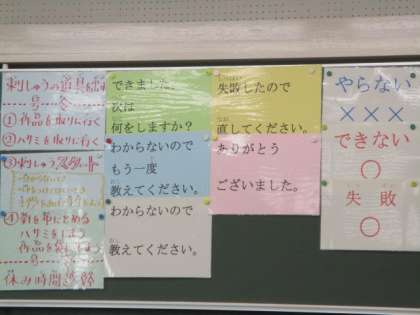 刺しゅうの道具を
①作品を取りに行く
②ハサミを取りに行く
③刺しゅう
④針を布にとめる
ハサミをしまう
休み時間
できました。
次は
何をしますか？
わからないので
もう一度
教えてください。
わからないので
教えてください。
失敗したので
直してください。
ありがとう
ございました。
やらない
×××
できない
○
失敗
○